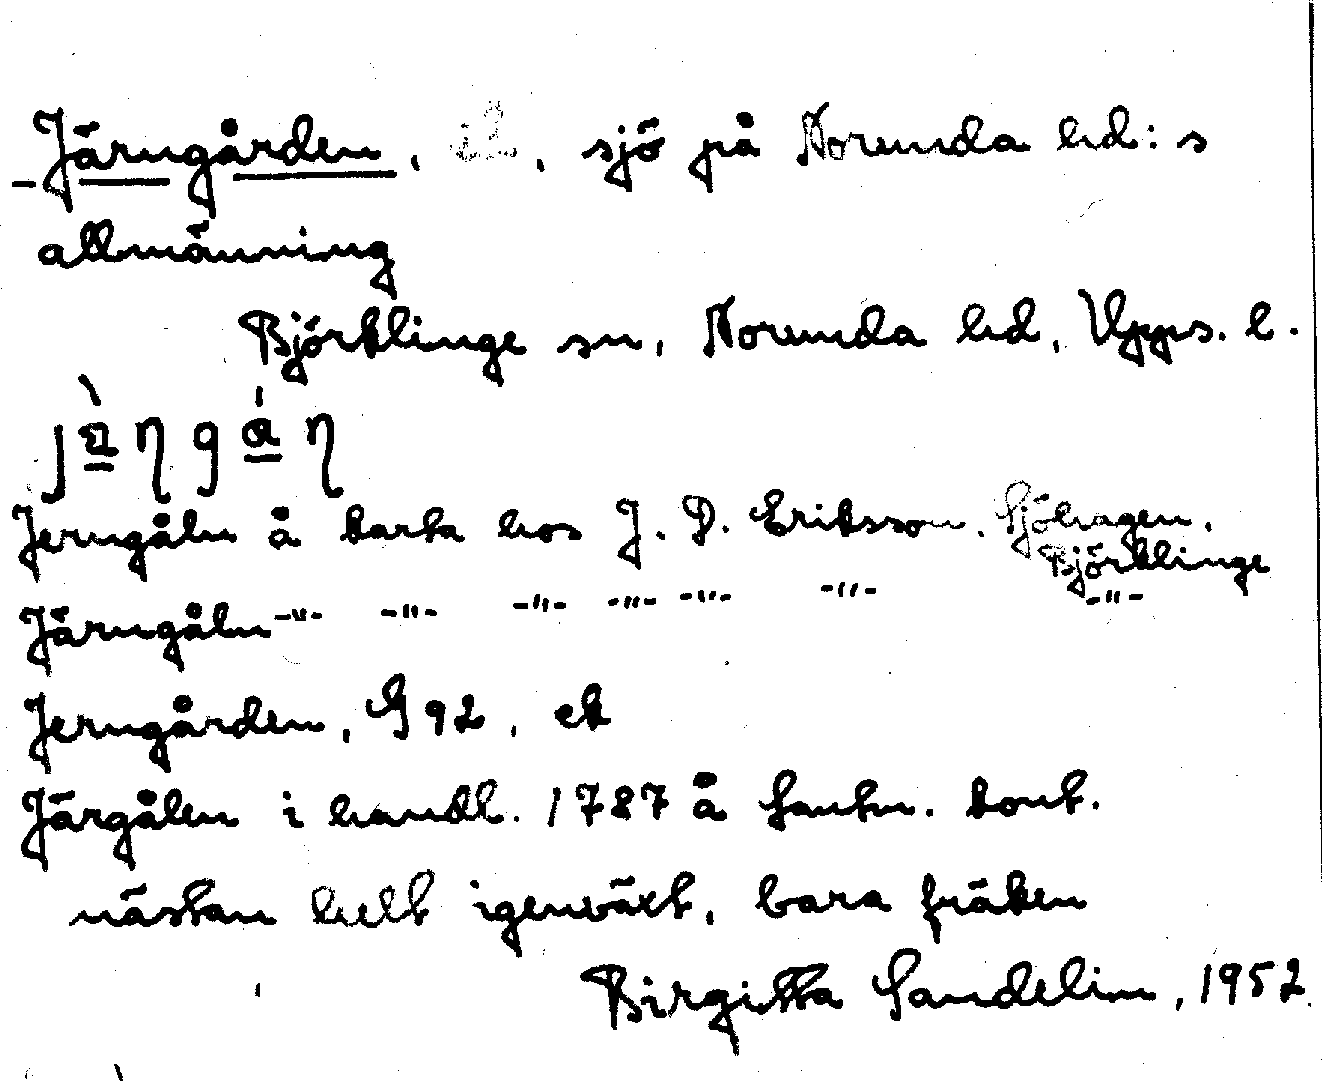 Järngården, i2, sjö på Norunda hd:s
allmänning
Björklinge sn, Norunda hd, Upps. l.
Jerngåln å karta hos J. D. Eriksson. Sjöhagen.
Björklinge
Järngåln -"- -"- -"- -"- -"- -"- -"-
Jerngården, G92, ek
Järgålen i handl. 1787 å Lantm. kont.
nästan helt igenväxt, bara fräken
Birgitta Sandelin, 1952